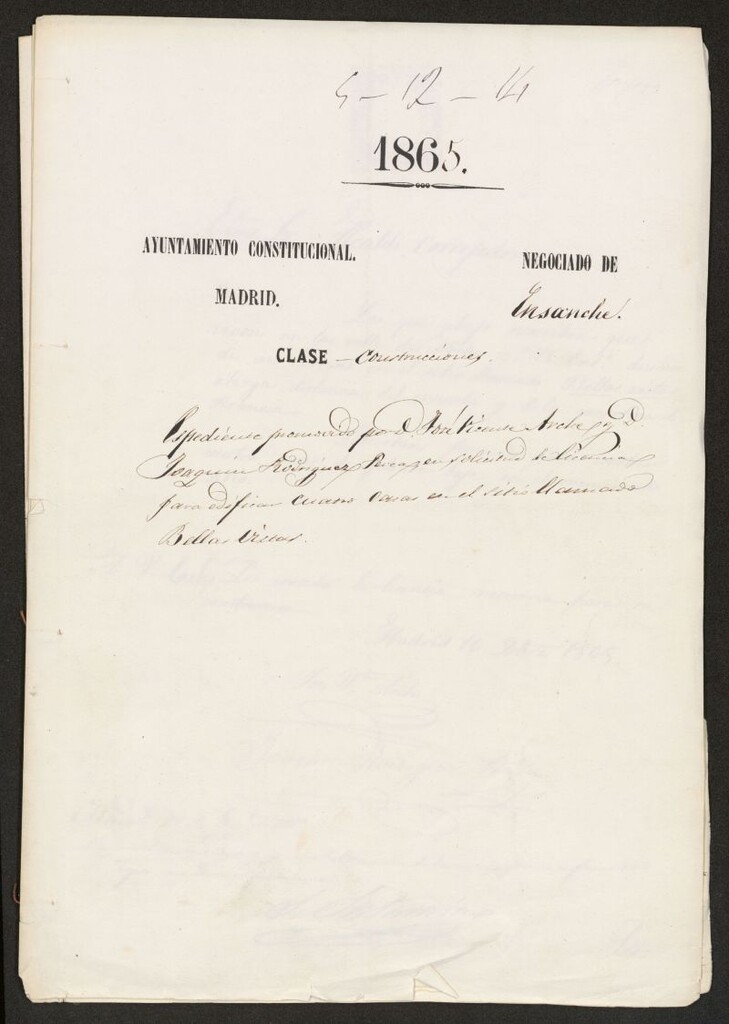 5-12-14
1865.
AYUNTAMIENTO CONSTITUCIONAL.
MADRID.
NEGOCIADO DE
Ensanche.
CLASE – Construcciones.
Espediente promovido por D. José Vicente Arche y D.
Joaquin Rodriguez en solicitud de licencia
para edificar cuatro casas en el sitio llamado
Bellas Vistas.